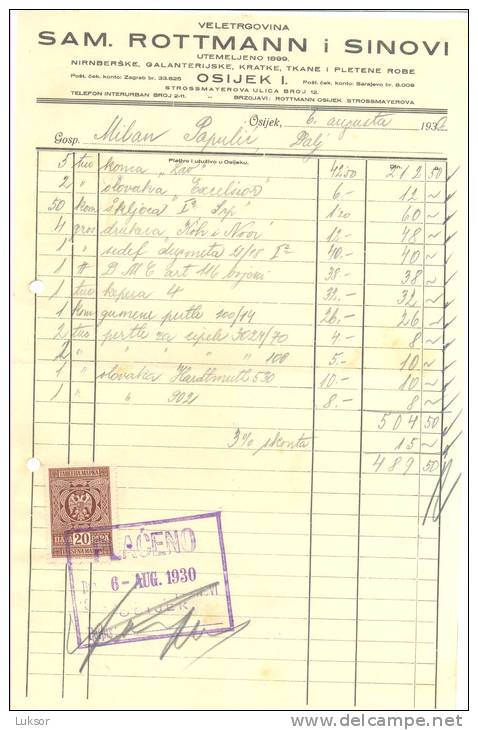 VELETRGOVINA
SAM. ROTTMANN i SINOVI
UTEMELJENO 1899.
NIRNBERŠKE, GALANTERIJSKE, KRATKE, TKANE I PLETENE ROBE
Pošt. ček. konto: Zagreb br. 33.625 OSIJEK I. Pošt. ček. konto: Sarajevo br. 8.009
STROSSMAYEROVA ULICA BROJ 12.
TELEFON INTERURBAN BROJ 2-11. BRZOJAVI: ROTTMANN OSIJEK STROSSMAYEROVA
Osijek, 6. augusta 1930
Gosp. Milan Papulić Dalj
Plativo i utuživo u Osijeku. Din.
5 tuc konca 42.50 212 50
2 " olovaka "Excelsior" 6.- 12 ~
50 kom Škljoca Iª Srp 1.20 60 ~
4 gros drukera Koh i Noor 12.- 48 ~
1 " sedef dugmeta 40.- 40 ~
1 " D M C art 116 bojani 38.- 38 ~
1 tuc 4 32.- 32 ~
1 kom gumene pertle 100/14 26.- 26 ~
2 tuc pertle za cipele 3024/70 4.- 8 ~
2 " " " " " 100 5.- 10 ~
1 " olovaka Hardtmuth 530 10.- 10 ~
1 " " 9021 8.- 8 ~
504 50
3% skonta 15 ~
489 50
ТАКСЕНА МАРКА
ПАРА 20 PARA
TAKSENA MARKA
PLAĆENO
6 - AUG. 1930
OSIJEK
Luksor
delcampe.net